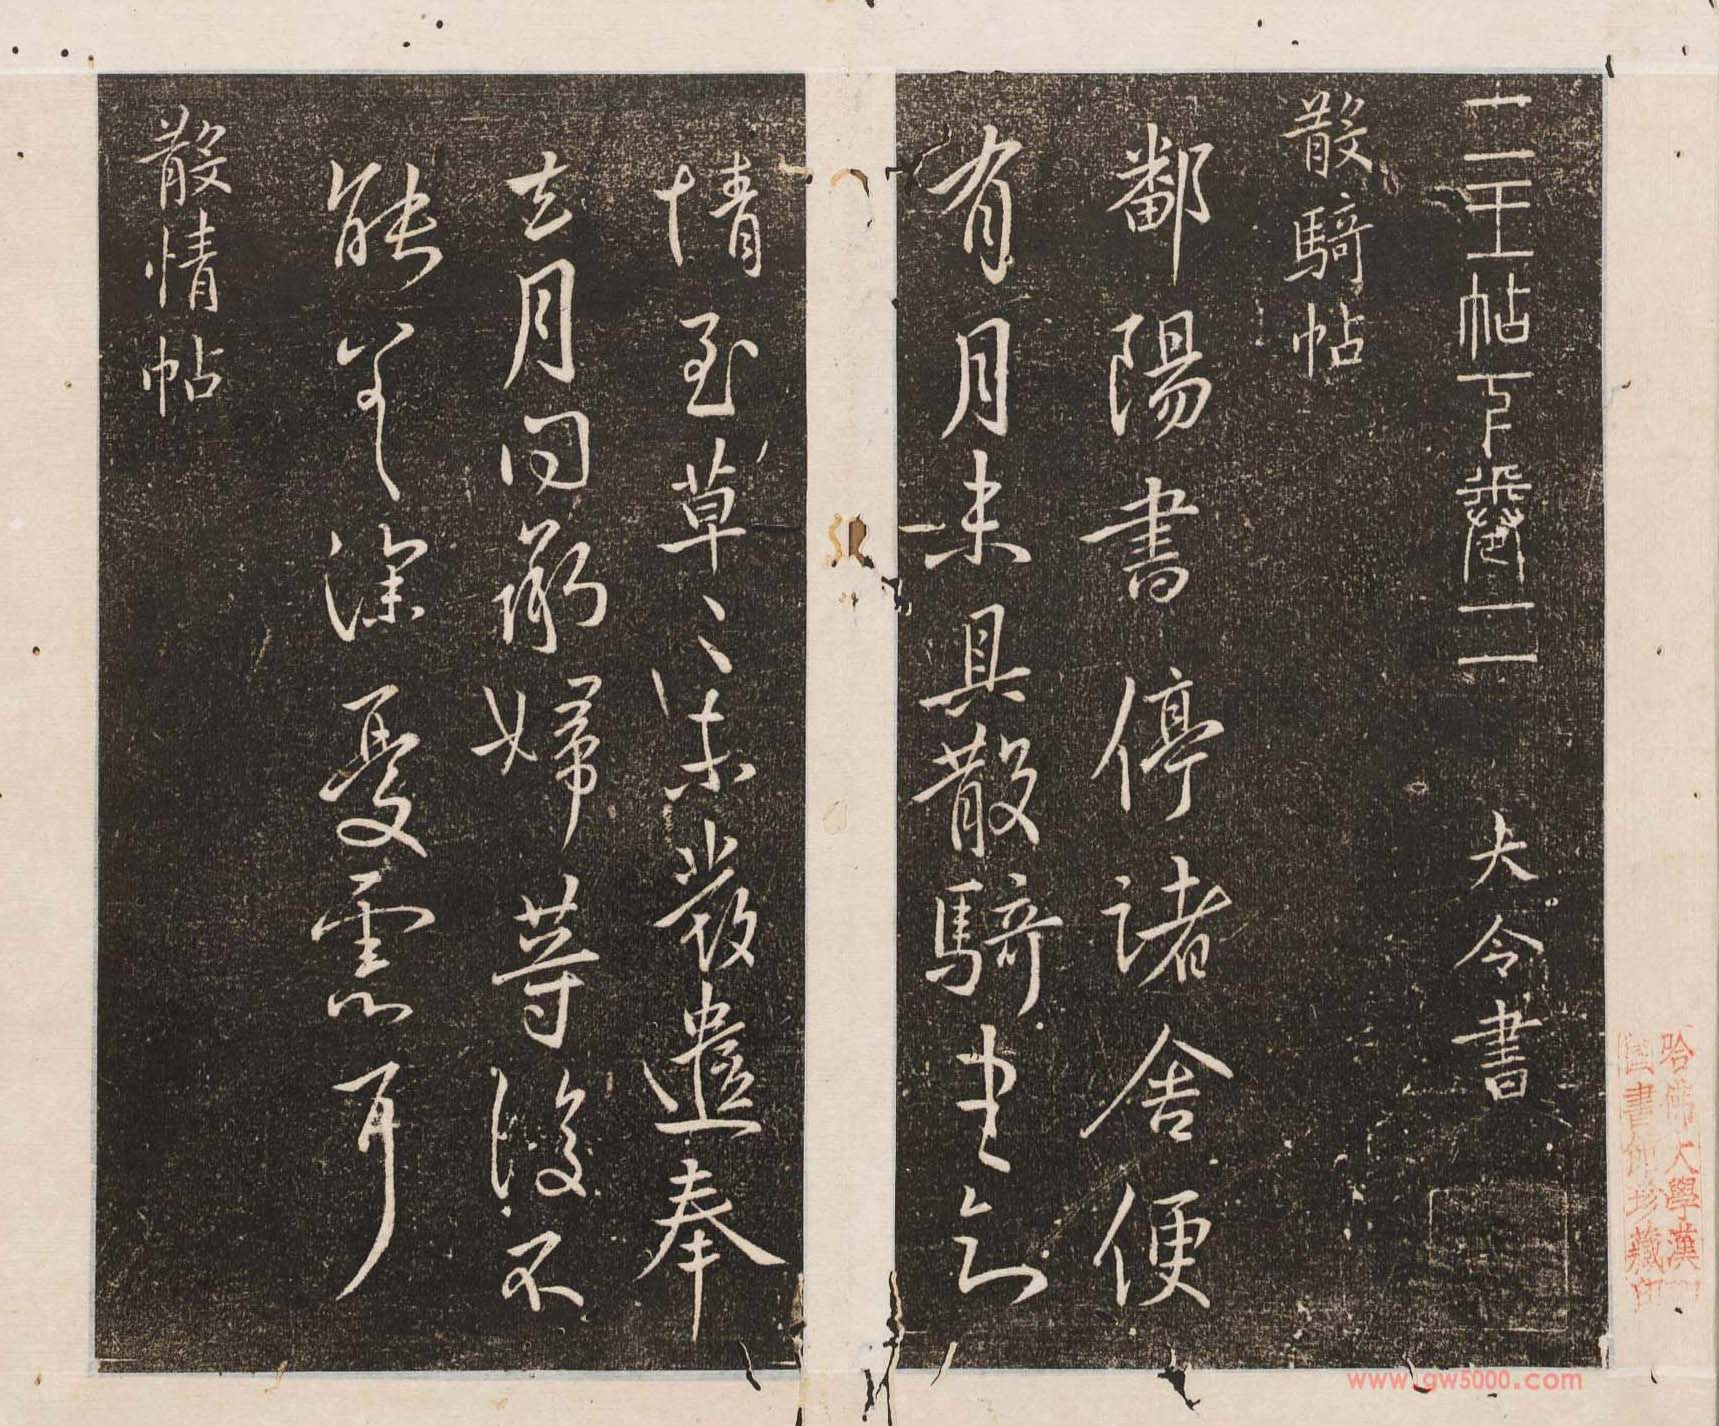 二王帖下卷二 大令書
散騎帖
鄱陽書停諸舍便
有月未具散騎
情至草々未發遣奉
去月問承婦等復不
能差深憂慮耳
散情帖
哈佛大學漢
圖書館珍藏印
www.gw5000.com